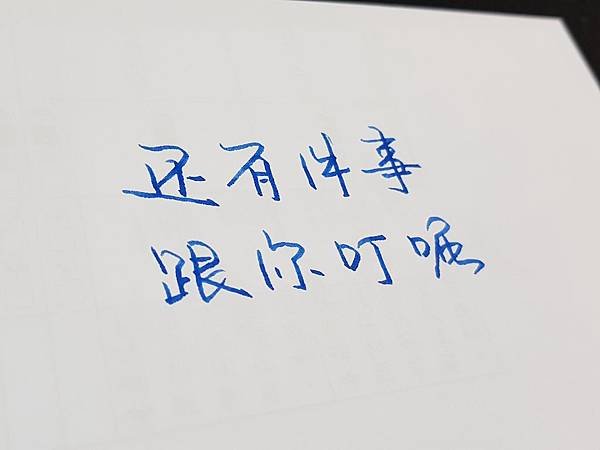 还有件事
跟你叮嘱